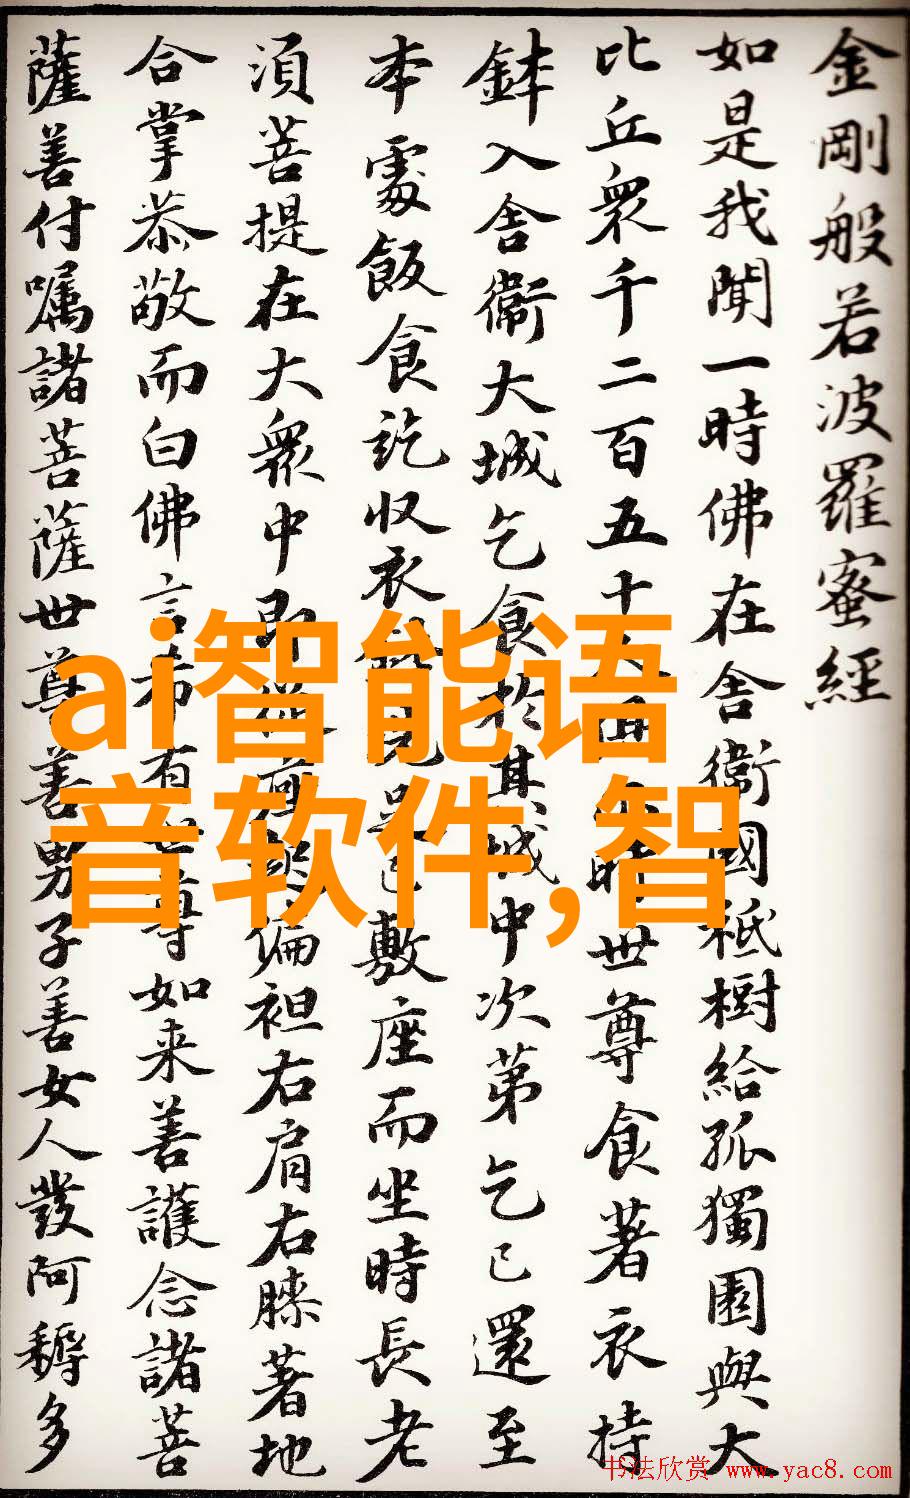 金剛般若波羅蜜經
如是我聞一時佛在舍衛國祇樹給孤獨園與大
比丘衆千二百五十人時世尊食著衣持
鉢入舍衛大城乞食於其城中次第乞已還至
本處飯食訖収衣足已敷座而坐時長老
須菩提在大衆中即從座起偏袒右肩右膝著地
合掌恭敬而白佛言希有世尊如来善護念諸菩
薩善付嘱諸菩薩世尊善男子善女人發阿耨多
ai智能语
音软件,智
书法欣赏 www.yac8.com